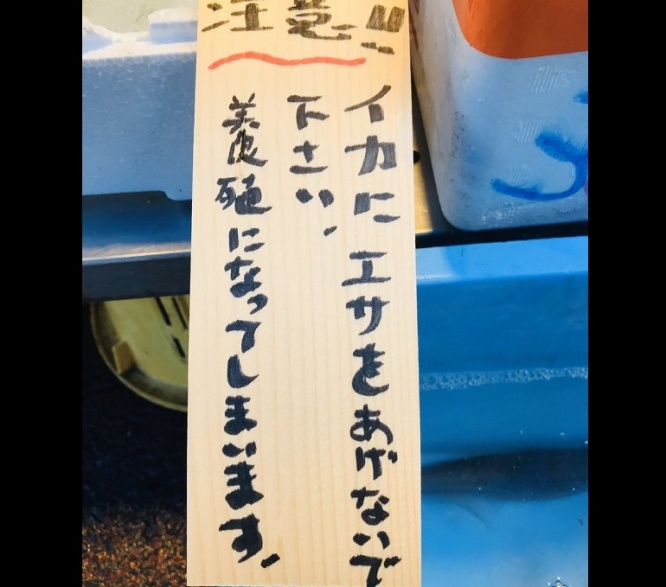 注意!!
イカにエサをあげないで
下さい、
養殖になってしまいます、